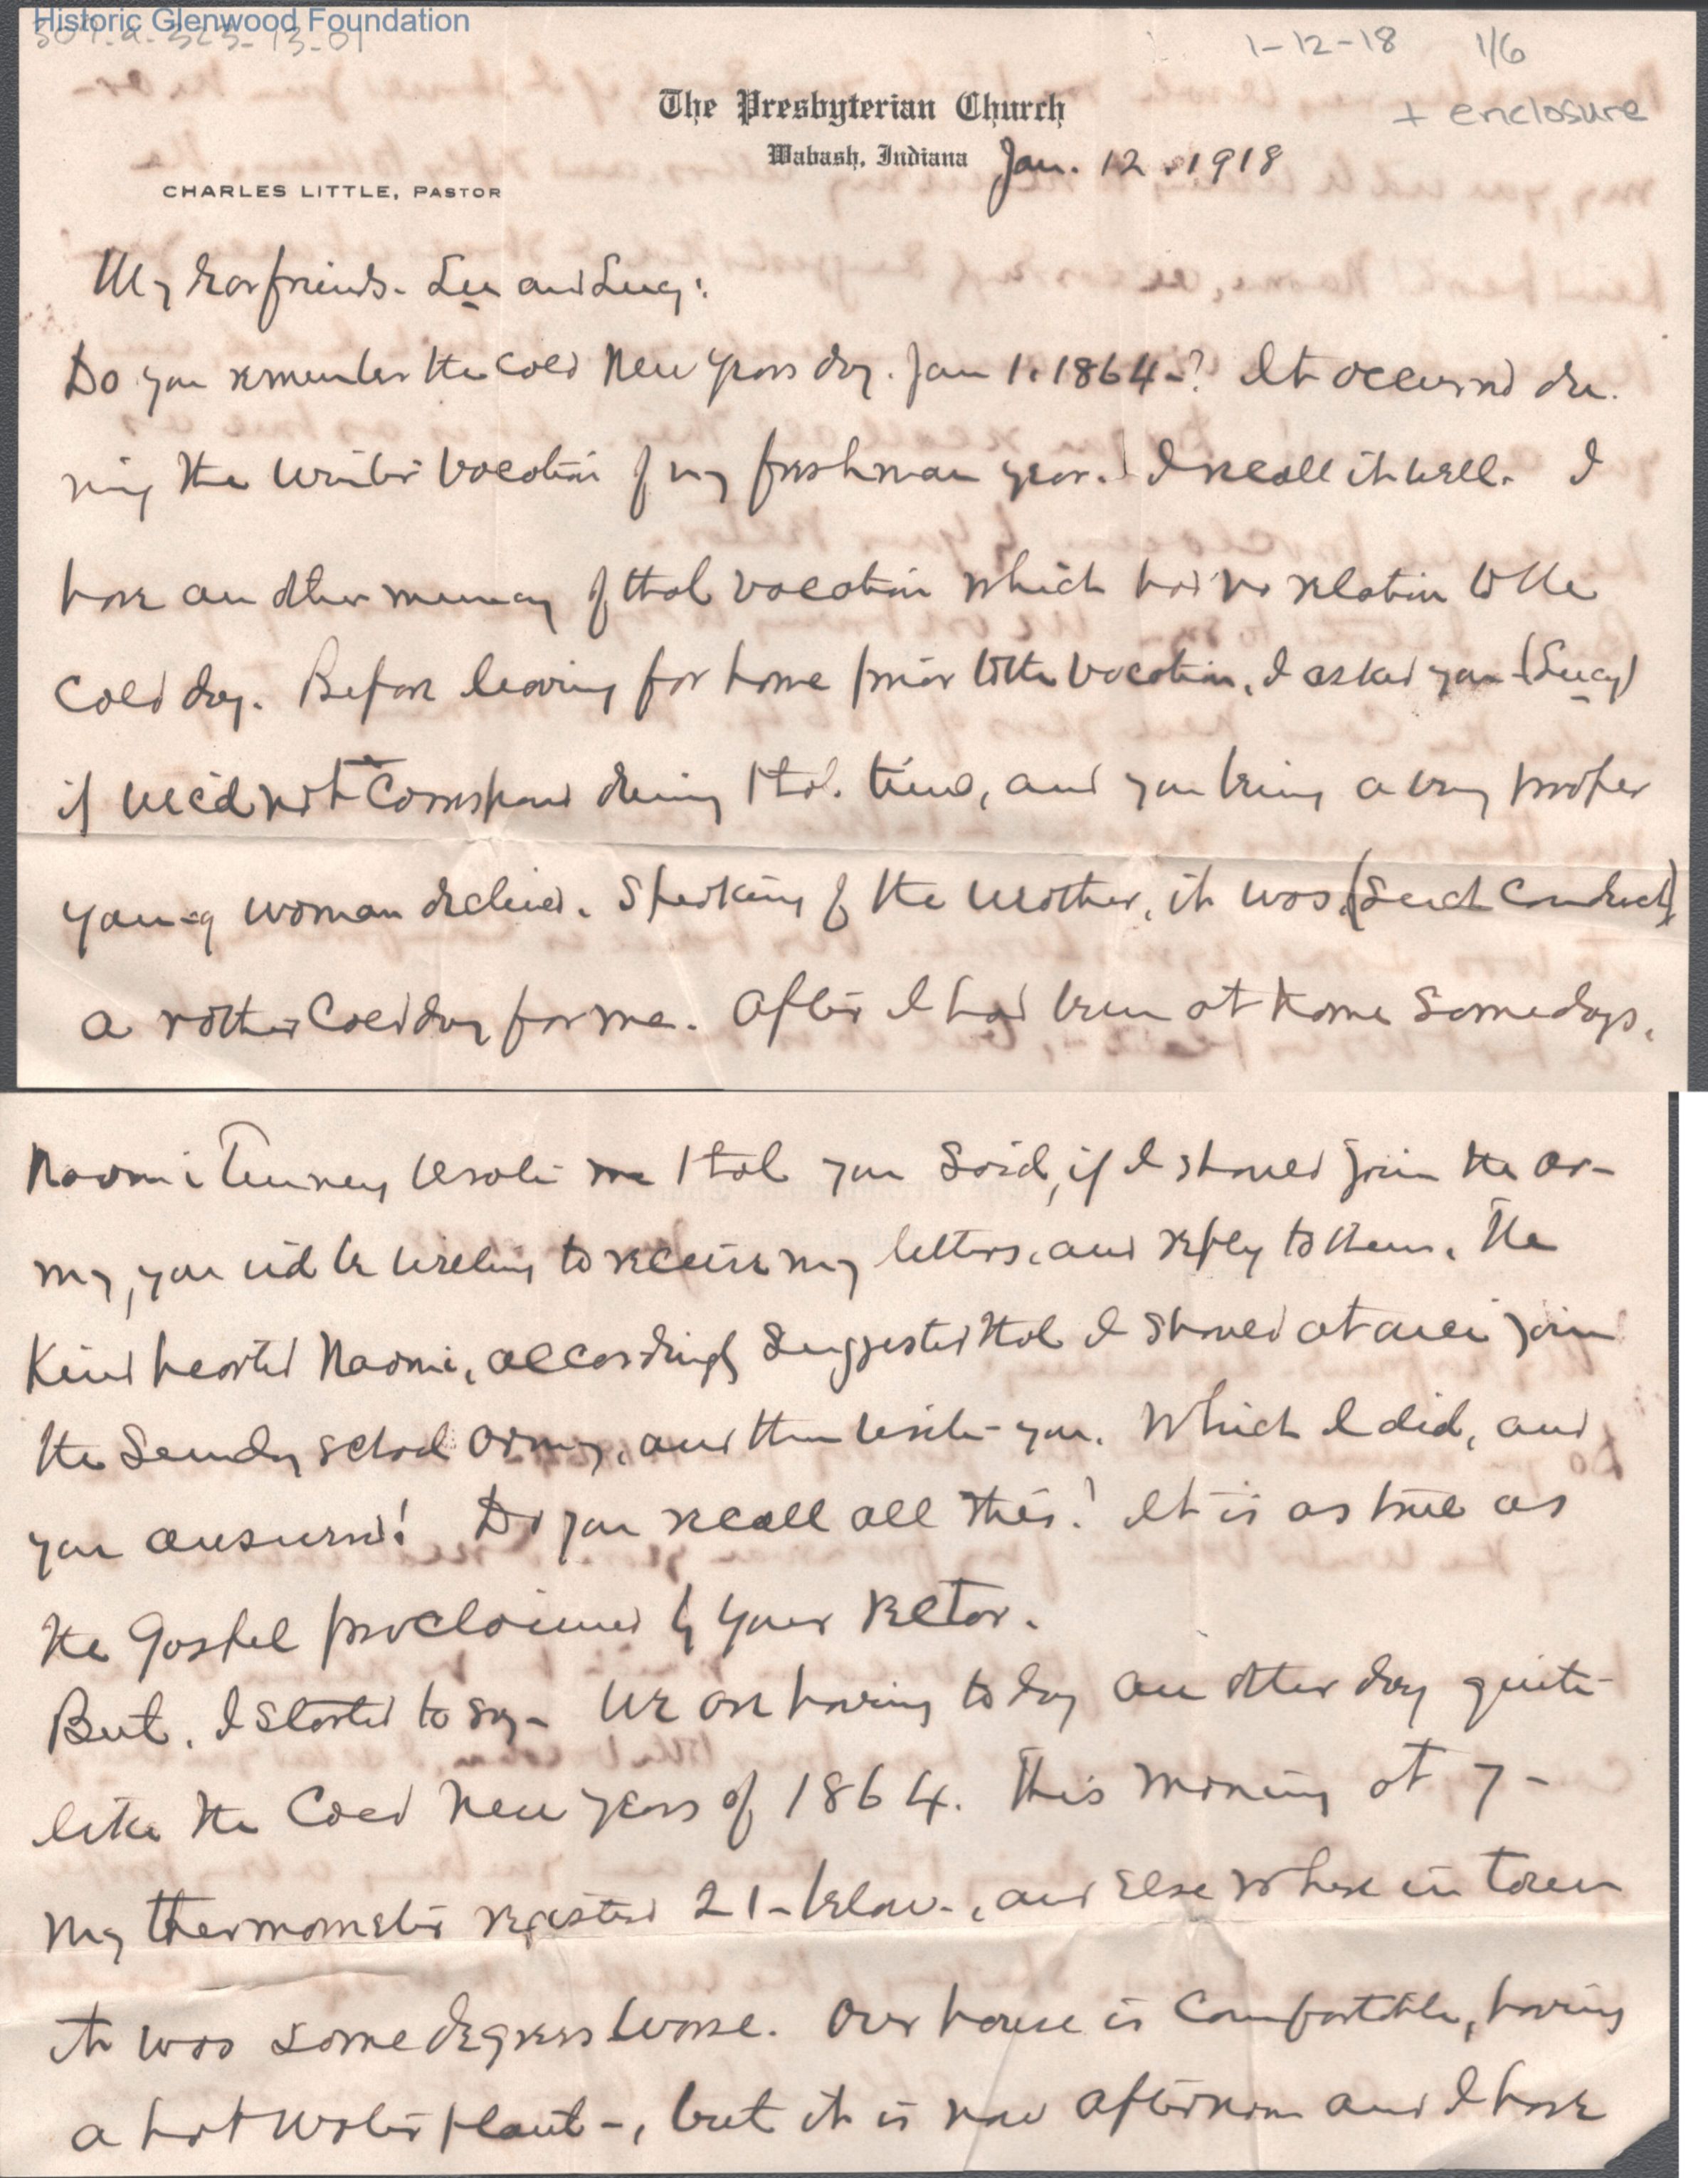 Historic Glenwood Foundation
309-a-323-13-01
1-12-18 1/6
+ enclosure
The Presbyterian Church
Wabash, Indiana Jan. 12. 1918
CHARLES LITTLE, PASTOR
My dear friends - Lee and Lucy:
Do you remember the cold New Years day. Jan 1. 1864-? It occurred du-
ring the winter vacation of my freshman year. I recall it well. I
have another memory of that vacation which had no relation to the
cold day. Before leaving for home prior to the vacation, I asked you (Lucy)
if we c'd not correspond during that time, and you being a very proper
young woman declined. Speaking of the weather, it was, (such conduct)
a rather cold day for me. After I had been at home some days,
Naomi Tenney wrote me that you said, if I should join the ar-
my, you w'd be willing to receive my letters, and reply to them. The
kind hearted Naomi, accordingly suggested that I should at once join
the Sunday school army, and then write you. Which I did, and
you answered! Do you recall all this! It is as true as
the Gospel proclaimed by your rector.
But, I started to say - We are having to day another day quite
like the cold New Years of 1864. This morning at 7-
my thermometer registered 21- below-, and else where in town
it was some degrees worse. Our house is comfortable, having
a hot water plant-, but it is now afternoon and I have